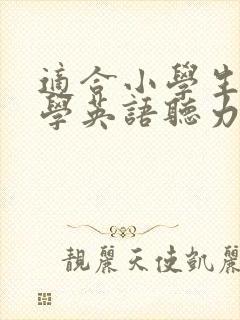 適合小學生
學英語聽力
靚麗天使凱麗